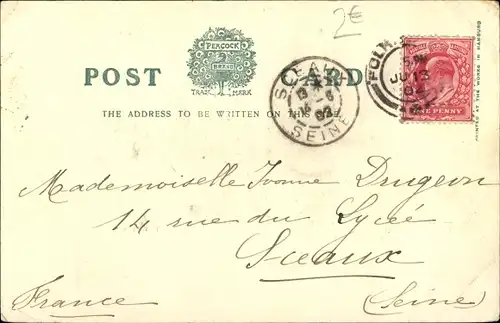 2€
PEACOCK
BRAND
TRADE MARK
POST CARD
THE ADDRESS TO BE WRITTEN ON THIS SIDE
SCEAUX
SEINE
JU 13
ONE PENNY
PRINTED AT THE WORKS IN HAMBURG
Mademoiselle Ivonne Drugeon
14 rue du Lycée
Sceaux
France (Seine)